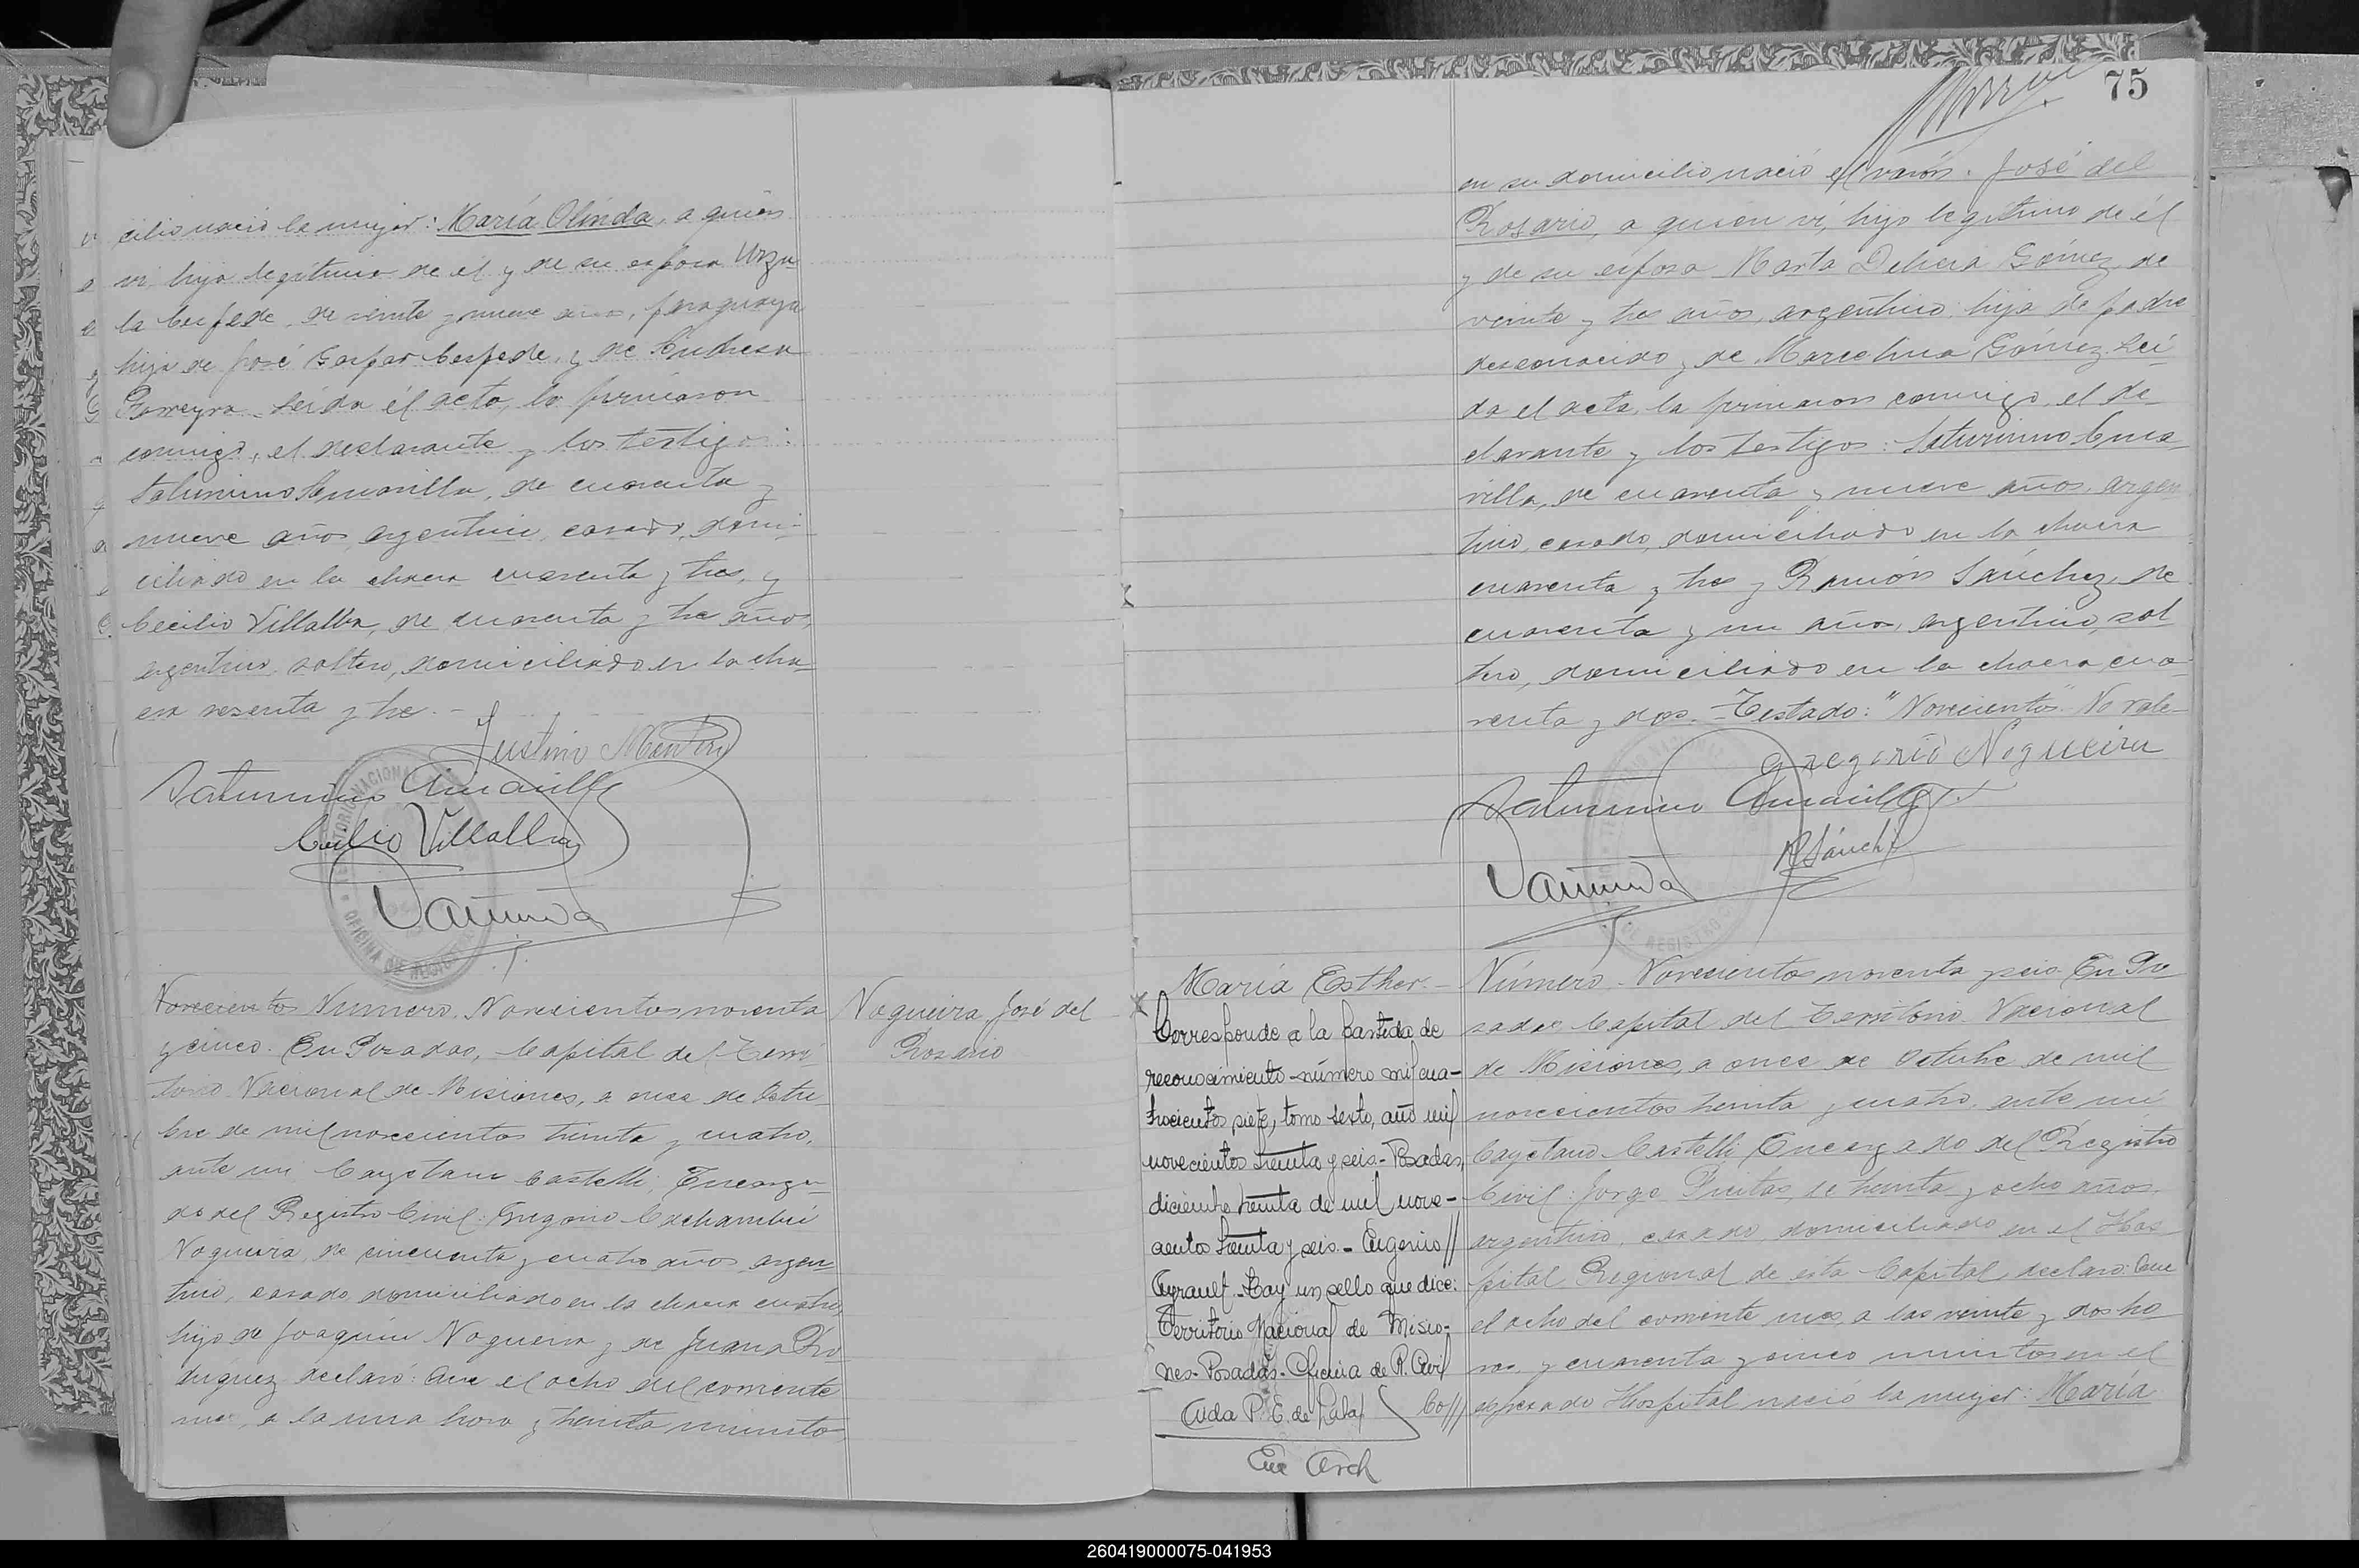 cilio nació la mujer: María Olinda, a quien
vi hija legítima de él y de su esposa Urzu-
la Cespede, de veinte y nueve años, paraguaya
hija de José Gaspar Cespede, y de Andresa
Leída el acta, la firmaron
conmigo, el declarante y los testigos:
Saturnino Amarilla, de cuarenta y
nueve años, argentino, casado, domi-
ciliado en la chacra cuarenta y tres, y
Cecilio Villalba, de cuarenta y tres años,
argentino, soltero, domiciliado en la cha-
cra sesenta y tres.-
Justino
Saturnino Amarilla
Cecilio Villalba
Novecientos Número. Novecientos noventa
y cinco. En Posadas, Capital del Terri-
torio Nacional de Misiones, a once de Octu-
bre de mil novecientos treinta y cuatro,
ante mi Cayetano Castelli, Encarga-
do del Registro Civil: Gregorio
Nogueira, de cincuenta y cuatro años, argen-
tino, casado domiciliado en la chacra cuatro,
hijo de Joaquín Nogueira y de Juana Ro-
dríguez declaró: Que el ocho del corriente
mes, a la una hora y treinta minutos
Nogueira José del
Rosario
75
en su domicilio nació el varón: José del
Rosario, a quien vi, hijo legítimo de él
y de su esposa Marta Gómez, de
veinte y tres años, argentina, hija de padre
desconocido y de Marcelina Gómez. Leí-
da el acta, la firmaron conmigo, el de-
clarante y los testigos: Saturnino Ama-
rilla, de cuarenta y nueve años, argen-
tino, casado, domiciliado en la chacra
cuarenta y tres y Ramón Sánchez, de
cuarenta y un años, argentino, sol-
tero, domiciliado en la chacra cua-
renta y dos.- Testado: "Novecientos". No vale-
Gregorio Nogueira
Saturnino Amarilla
RSánchez
María Esther.-
Corresponde a la partida de
reconocimiento-número mil cua-
trocientos siete, tomo sexto, año mil
novecientos treinta y seis.- Posadas,
diciembre treinta de mil nove-
cientos treinta y seis.- Eugenio//
Ayrault.- Hay un sello que dice:
Territorio Nacional de Misio-
nes.-Posadas.-Oficina de R. Civil
Co//
Enc Arch
Número. Novecientos noventa y seis. En Po-
sadas Capital del Territorio Nacional
de Misiones, a once de Octubre de mil
novecientos treinta y cuatro, ante mi
Cayetano Castelli Encargado del Registro
Civil: Jorge Freitas, de treinta y ocho años,
argentino, casado, domiciliado en el Hos-
pital Regional de esta Capital, declaró: Que
el ocho del corriente mes, a las veinte y dos ho-
ras, y cuarenta y cinco minutos en el
expresado Hospital nació la mujer: María